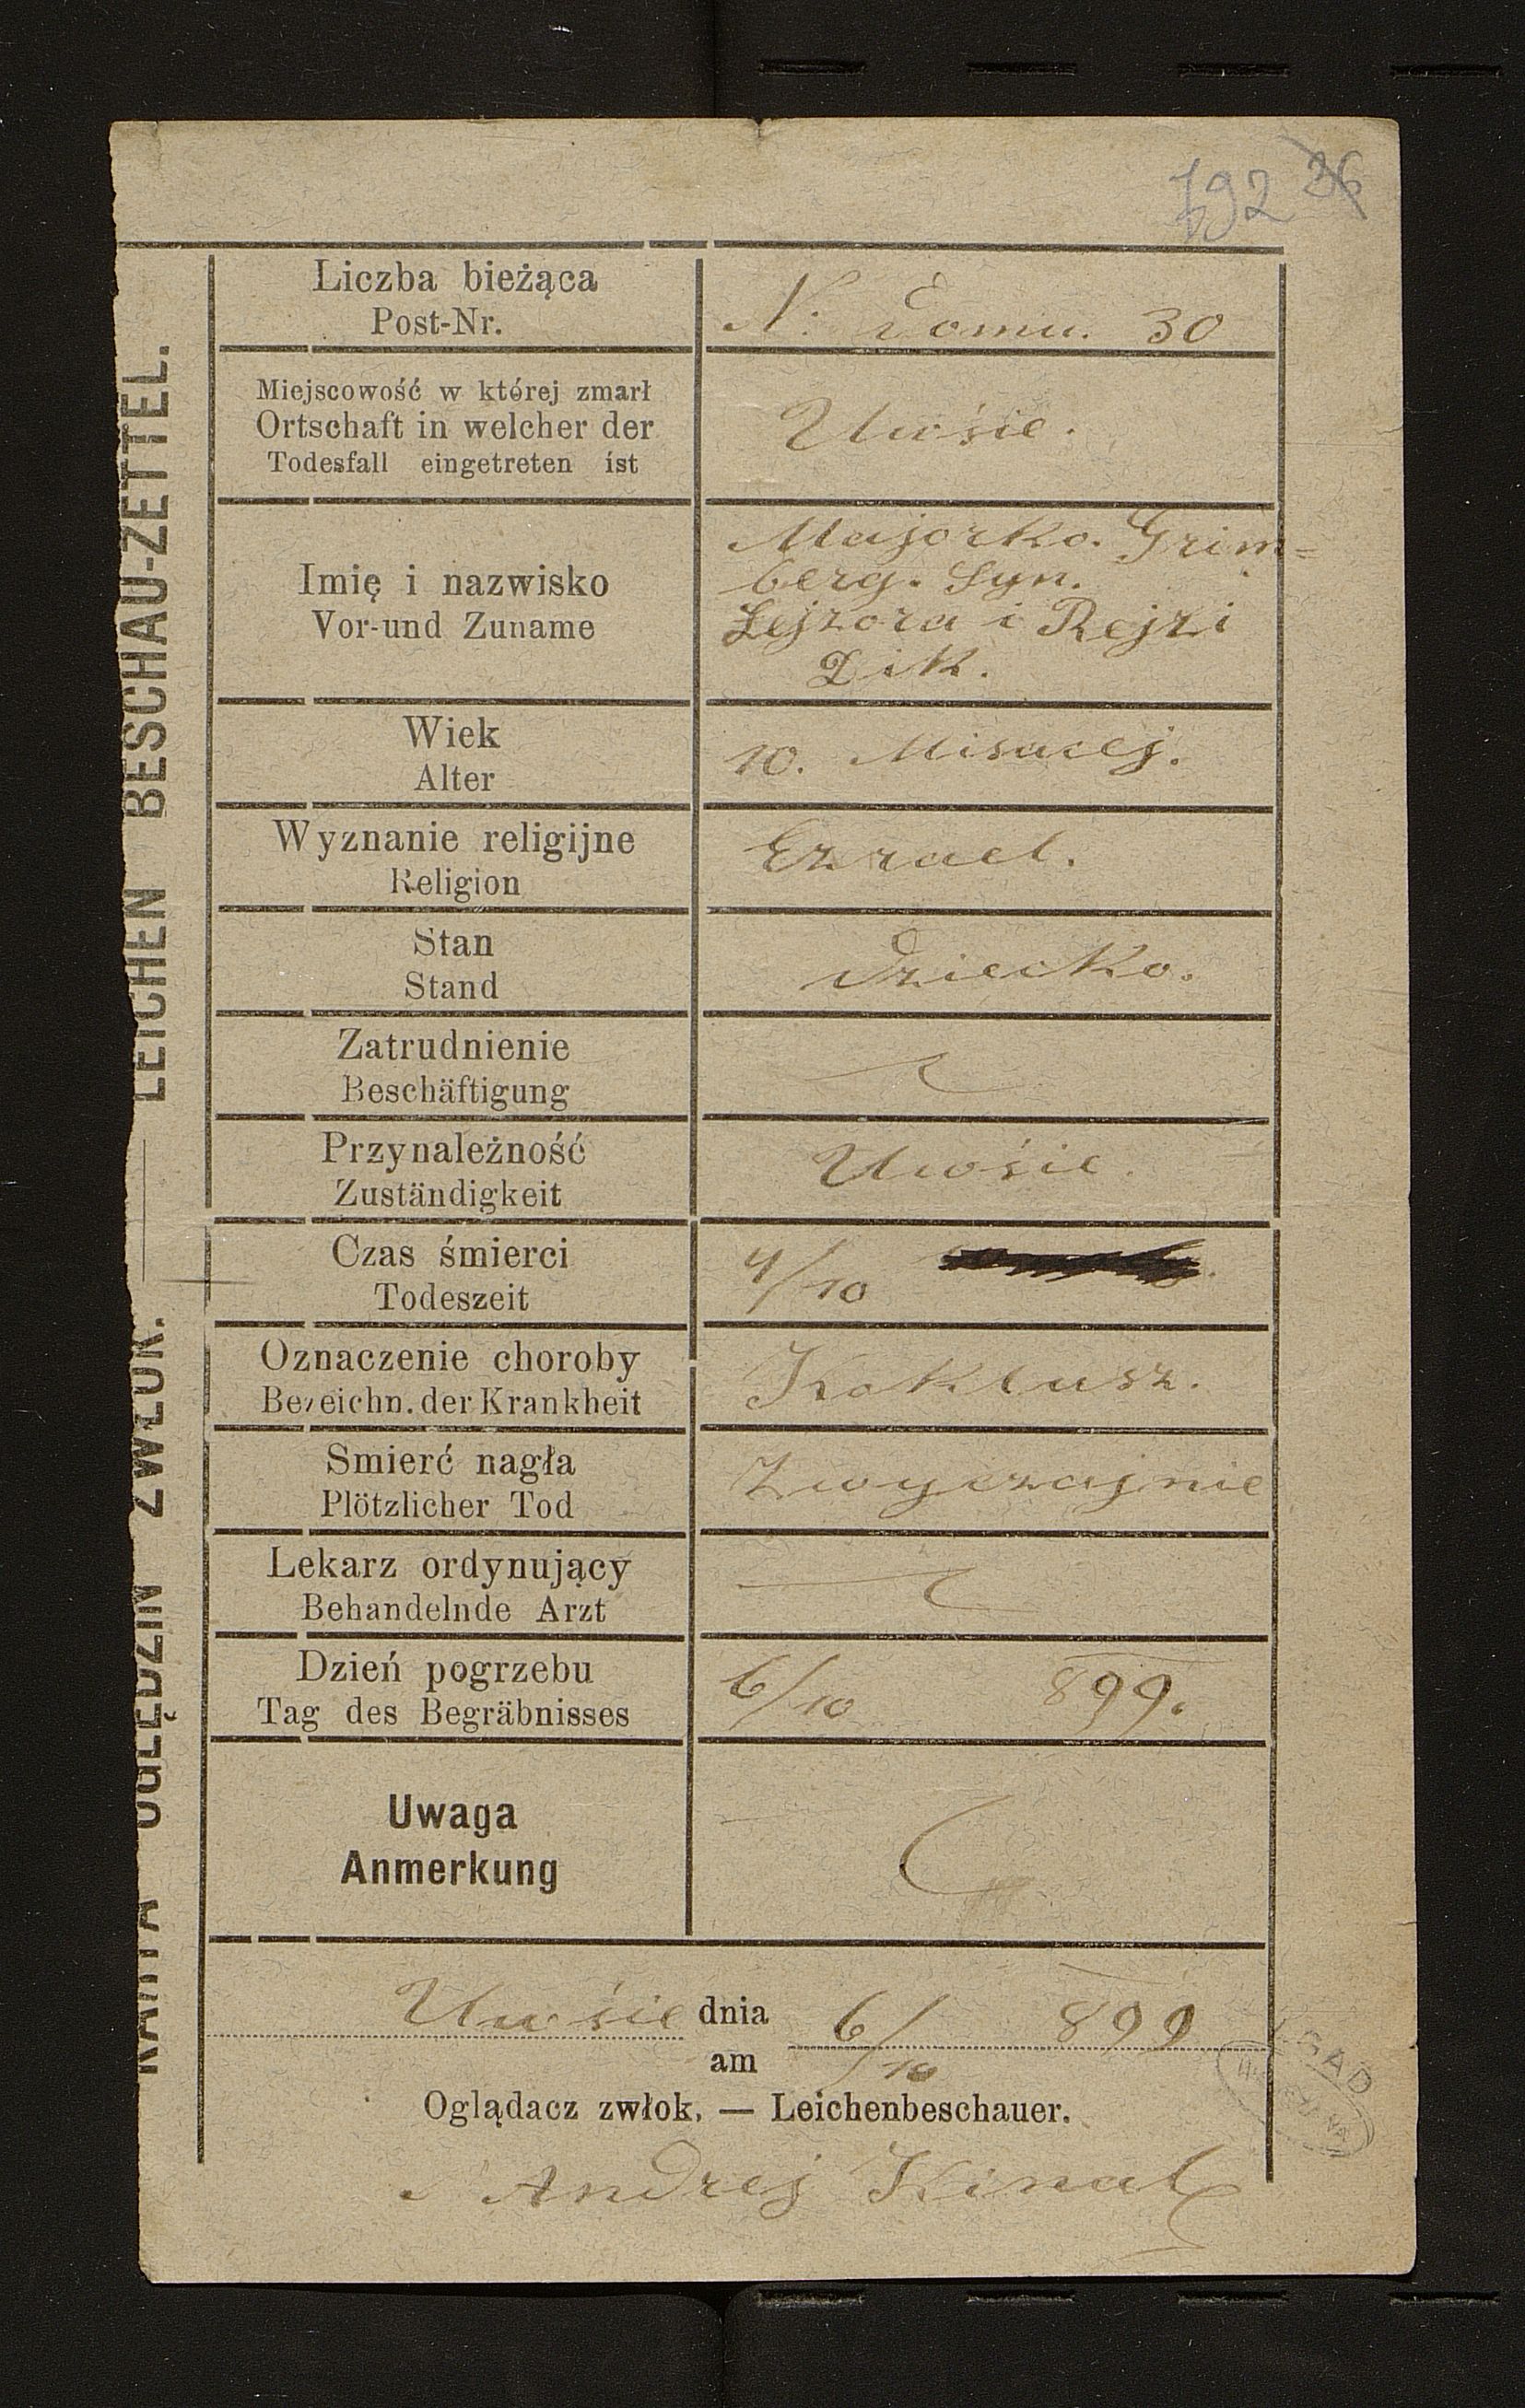 192 26
KARTA OGLĘDZIN ZWŁOK. — LEICHEN BESCHAU-ZETTEL.
Liczba bieżąca
Post-Nr.
N: Domu. 30
Miejscowość w której zmarł
Ortschaft in welcher der
Todesfall eingetreten ist
Uwsie.
Imię i nazwisko
Vor-und Zuname
Majorko. Grim=
berg. Syn.
Lejzora i Rejzi
Dik.
Wiek
Alter
10. Misacej.
Wyznanie religijne
Religion
Ezrael.
Stan
Stand
Dziecko.
Zatrudnienie
Beschäftigung
Przynależność
Zuständigkeit
Uwsie.
Czas śmierci
Todeszeit
4/10
Oznaczenie choroby
Bezeichn. der Krankheit
Koklusz.
Smierć nagła
Plötzlicher Tod
Zwyczajnie
Lekarz ordynujący
Behandelnde Arzt
Dzień pogrzebu
Tag des Begräbnisses
6/10 899.
Uwaga
Anmerkung
Uwsie dnia 6/10 899
am
Oglądacz zwłok. — Leichenbeschauer.
Andrej Kinal
AGAD